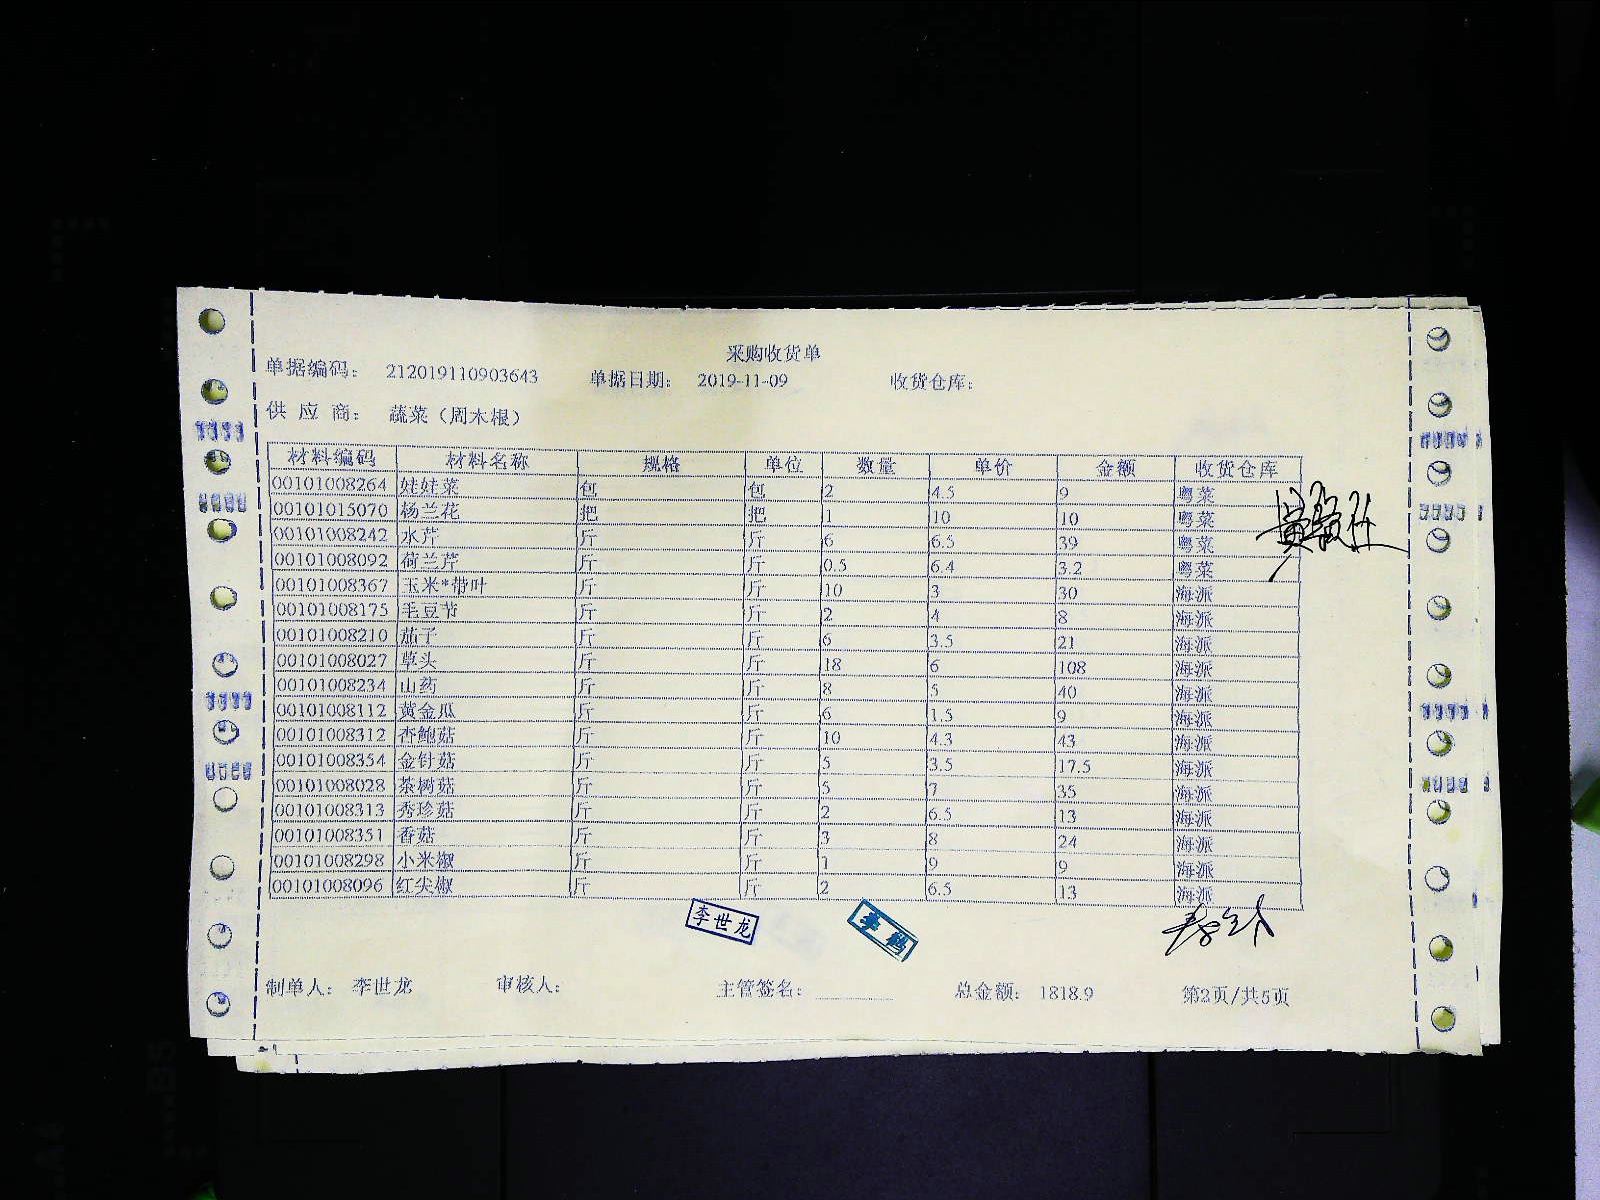 采购收货单
单据编码： 212019110903643 单据日期： 2019-11-09 收货仓库：
供 应 商： 蔬菜（周木根）
材料编码 材料名称 规格 单位 数量 单价 金额 收货仓库
00101008264 娃娃菜 包 包 2 4.5 9 粤菜
00101015070 杨兰花 把 把 1 10 10 粤菜
00101008242 水芹 斤 斤 6 6.5 39 粤菜
00101008092 荷兰芹 斤 斤 0.5 6.4 3.2 粤菜
00101008367 玉米*带叶 斤 斤 10 3 30 海派
00101008175 毛豆节 斤 斤 2 4 8 海派
00101008210 茄子 斤 斤 6 3.5 21 海派
00101008027 草头 斤 斤 18 6 108 海派
00101008234 山药 斤 斤 8 5 40 海派
00101008112 黄金瓜 斤 斤 6 1.5 9 海派
00101008312 杏鲍菇 斤 斤 10 4.3 43 海派
00101008354 金针菇 斤 斤 5 3.5 17.5 海派
00101008028 茶树菇 斤 斤 5 7 35 海派
00101008313 秀珍菇 斤 斤 2 6.5 13 海派
00101008351 香菇 斤 斤 3 8 24 海派
00101008298 小米椒 斤 斤 1 9 9 海派
00101008096 红尖椒 斤 斤 2 6.5 13 海派
李世龙
制单人： 李世龙 审核人： 主管签名： 总金额： 1818.9 第2页/共5页